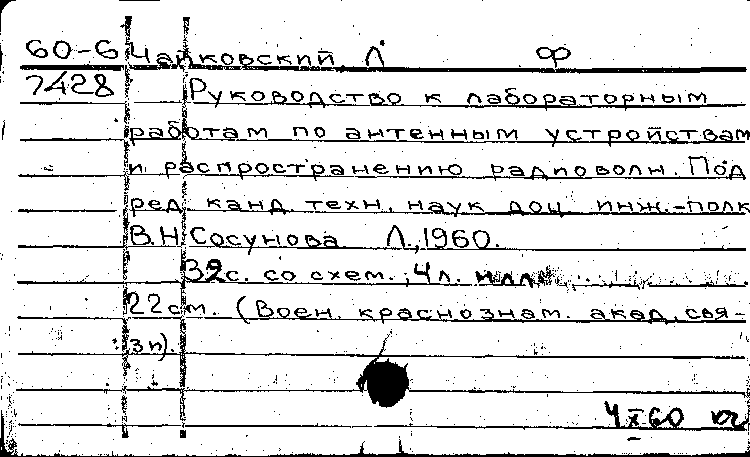 60-6 Чайковский, Л ф
7428 Руководство к лабораторным
работам по антенным устройствам
и распространению радиоволн. Под
ред. канд. техн. наук доц. инж.-полк
В.Н. Сосунова Л., 1960.
32с. со схем.; 4л. илл.
22см. (Воен. краснознам. акад. свя-
зи).
4 X 60